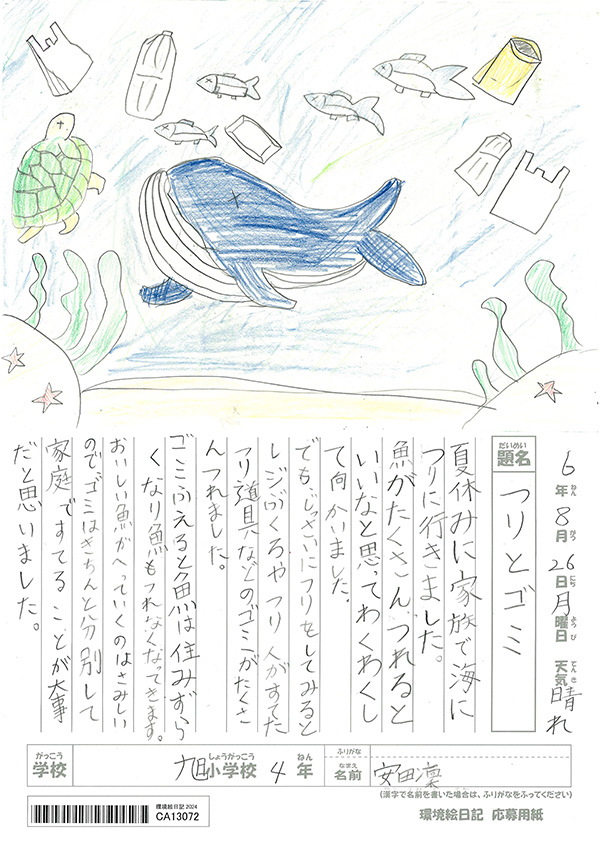 6年8月26日月曜日 天気晴れ
ねん がつ にち ようび てんき
だいめい
題名 つりとゴミ
夏休みに家族で海に
つりに行きました。
魚がたくさん、つれると
いいなと思ってわくわくし
て向かいました。
でも、じっさいにつりをしてみると
レジぶくろや つり人がすてた
つり道具などのゴミがたくさ
んつれました。
ゴミふえると魚は住みずら
くなり魚もつれなくなってきます。
おいしい魚がへっていくのはさみしい
ので、ゴミはきちんと分別して
家庭ですてることが大事
だと思いました。
がっこう しょうがっこう ねん ふりがな
学校 旭小学校 4年
なまえ
名前 安田凜
(漢字で名前を書いた場合は、ふりがなをふってください)
環境絵日記 2024
CA13072
環境絵日記 応募用紙